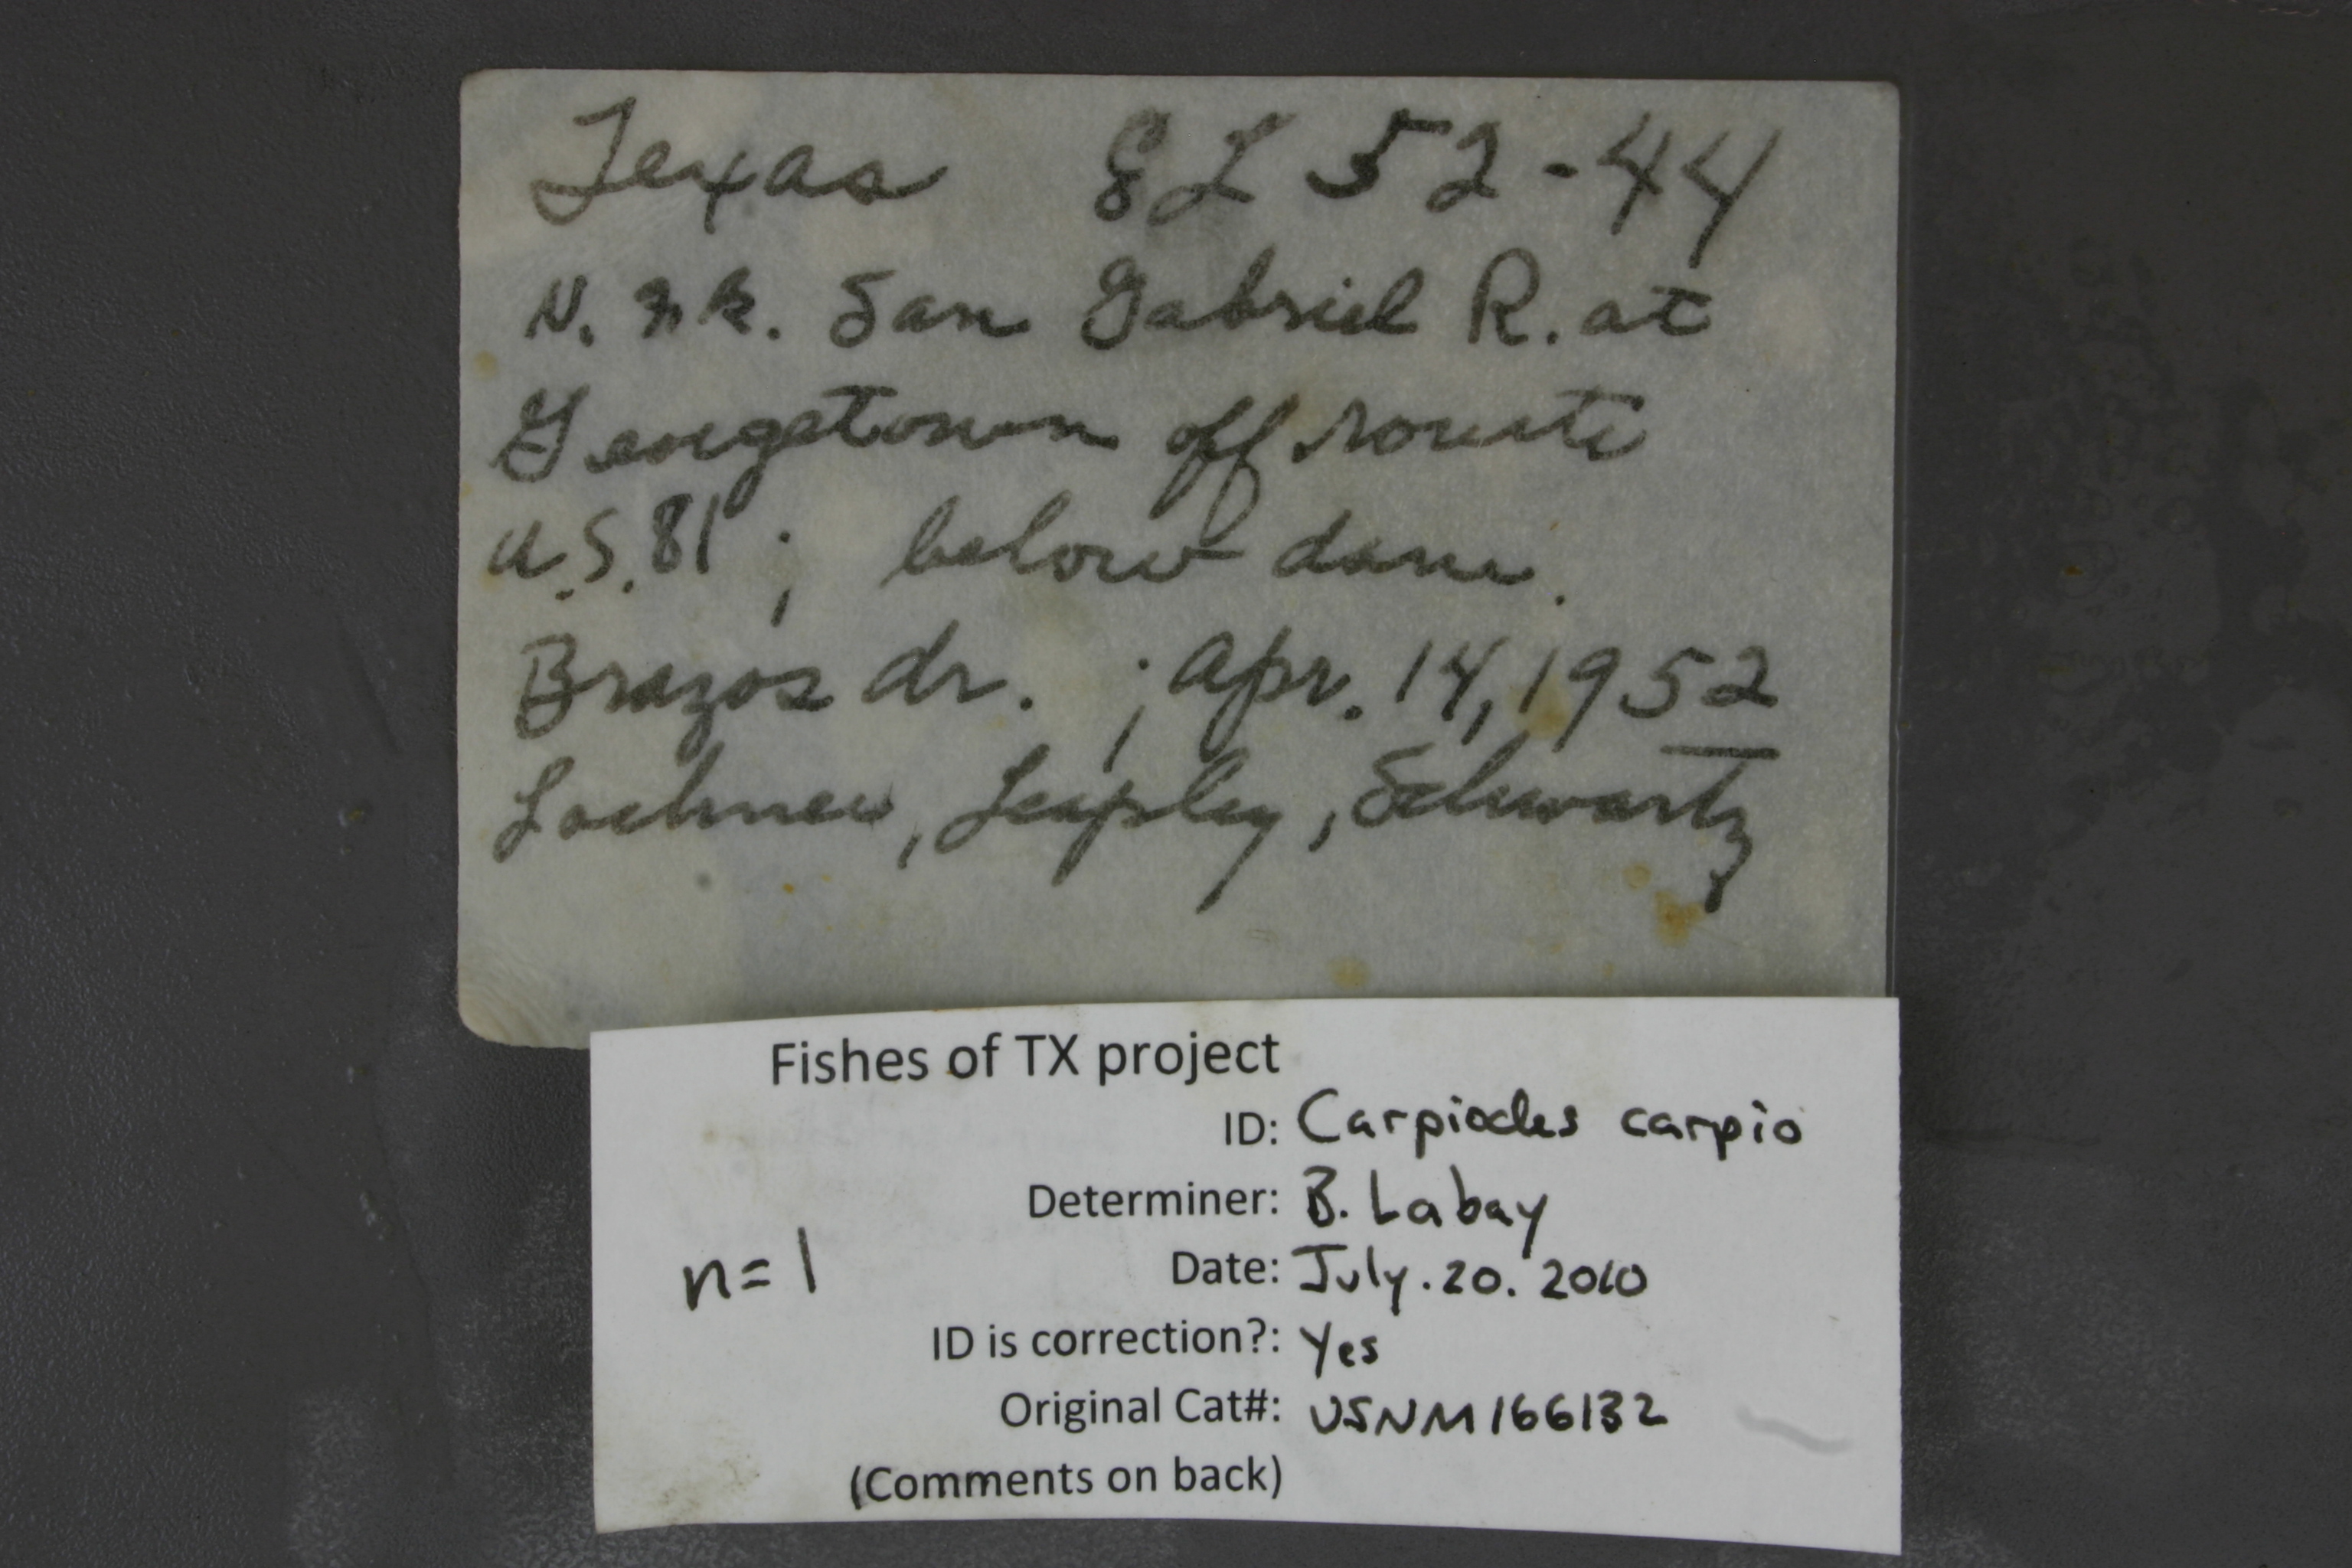 Texas EL 52-44
N. Fk. San Gabriel R. at
Georgetown off route
U.S. 81 ; below dam.
Brazos dr. ; Apr. 14, 1952
Lachner, Leapley, Schwartz
Fishes of TX project
ID: Carpiodes carpio
Determiner: B. Labay
n=1 Date: July. 20. 2010
ID is correction?: Yes
Original Cat#: USNM 166132
(Comments on back)